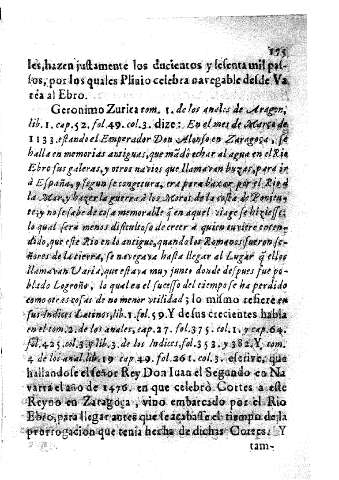 175
les, hazen justamente los ducientos y sesenta mil pas-
sos, por los quales Plinio celebra navegable desde Va
rea al Ebro.
Geronimo Zurita tom. 1. de los anales de Aragon,
lib. 1. cap. 52. fol. 49. col. 3. dize: En el mes de Março de
1133. estando el Emperador Don Alonso en Zaragoça, se
halla en memorias antiguas, que mãdò echar al agua en el Rio
Ebro sus galeras, y otros navios que llamavan buzas, para ir
à España, y segun se congetura, era para baxar por el Rio à
la Mar, y hazer la guerra à los Moros de la costa de Ponien-
te; y no se sabe de cosa memorable q̃ en aquel viage se hiziesse;
lo qual serà menos dificultoso de creer à quien tuviere enten-
dido, que este Rio en lo antiguo, quando los Romanos fueron se-
ñores de la tierra, se navegava hasta llegar al Lugar q̃ ellos
llamavan Varia, que estava muy junto donde despues fue po-
blado Logroño, lo qual en el sucesso del tiempo se ha perdido
como otras cosas de no menor utilidad; lo mismo refiere en
sus Indices Latinos, lib. 1. fol. 59. Y de sus crecientes habla
en el tom. 2. de los anales, cap. 27. fol. 375. col. 1. y cap. 64.
fol. 425. col. 3. y lib. 3. de los Indices, fol. 353. y 382. Y tom.
4. de los anal. lib. 19 cap. 49. fol. 261. col. 3. escrive, que
hallandose el señor Rey Don Iuan el Segundo en Na
varra el año de 1476. en que celebrò Cortes a este
Reyno en Zaragoça, vino embarcado por el Rio
Ebro, para llegar antes que se acabasse el tiempo de la
prorrogacion que tenia hecha de dichas Cortes. Y
tam-